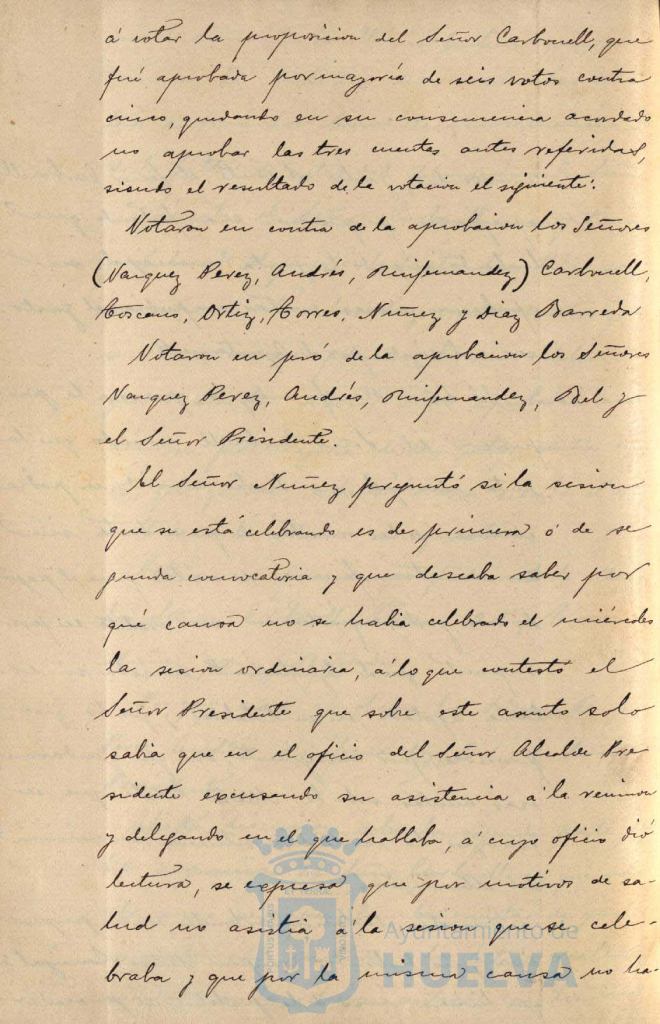 á votar la proposicion del Señor Carbonell, que
fué aprobada por mayoría de seis votos contra
cinco, quedando en su consecuencia acordado
no aprobar las tres cuentas antes referidas,
siendo el resultado de la votacion el siguiente:
Votaron en contra de la aprobacion los Señores
(Vazquez Perez, Andrés, Rinfernandez) Carbonell,
Toscano, Ortiz, Torres, Nuñez y Diaz Barreda
Votaron en pró de la aprobacion los Señores
Vazquez Perez, Andrés, Rinfernandez, Bel y
el Señor Presidente.
El Señor Nuñez preguntó si la sesion
que se está celebrando es de primera ó de se
gunda convocatoria y que deseaba saber por
qué causa no se habia celebrado el miércoles
la sesion ordinaria, á lo que contestó el
Señor Presidente que sobre este asunto solo
sabia que en el oficio del Señor Alcalde Pre
sidente excusando su asistencia á la reunion
y delegando en el que hablaba, á cuyo oficio dió
lectura, se expresa que por motivos de sa-
lud no asistia á la sesion que se cele-
braba y que por la misma causa no ha-
Ayuntamiento de
HUELVA